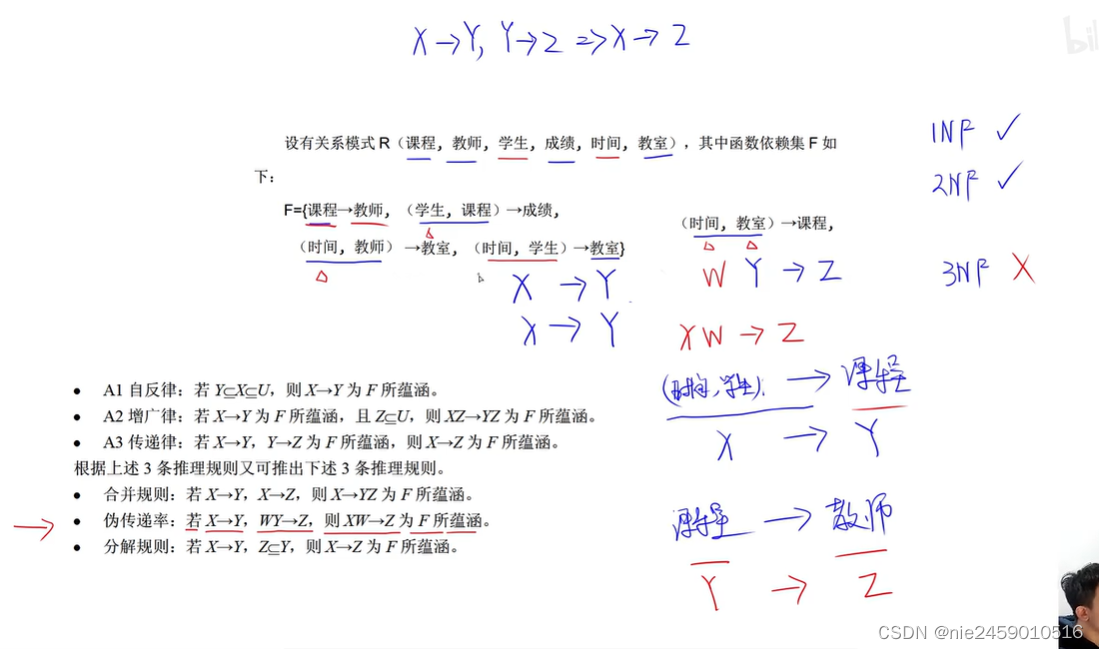 X→Y, Y→Z => X→Z
bil
设有关系模式 R（课程，教师，学生，成绩，时间，教室），其中函数依赖集 F 如
下：
1NF ✓
2NF ✓
F={课程→教师，（学生，课程）→成绩，
（时间，教室）→课程，
（时间，教师）→教室，（时间，学生）→教室}
3NF X
X → Y
W Y → Z
X → Y
XW → Z
（时间，学生）. → 课程
X → Y
• A1 自反律：若 Y⊆X⊆U，则 X→Y 为 F 所蕴涵。
• A2 增广律：若 X→Y 为 F 所蕴涵，且 Z⊆U，则 XZ→YZ 为 F 所蕴涵。
• A3 传递律：若 X→Y，Y→Z 为 F 所蕴涵，则 X→Z 为 F 所蕴涵。
根据上述 3 条推理规则又可推出下述 3 条推理规则。
• 合并规则：若 X→Y，X→Z，则 X→YZ 为 F 所蕴涵。
• 伪传递率：若 X→Y，WY→Z，则 XW→Z 为 F 所蕴涵。
• 分解规则：若 X→Y，Z⊆Y，则 X→Z 为 F 所蕴涵。
课程 → 教师
Y → Z
CSDN @nie2459010516